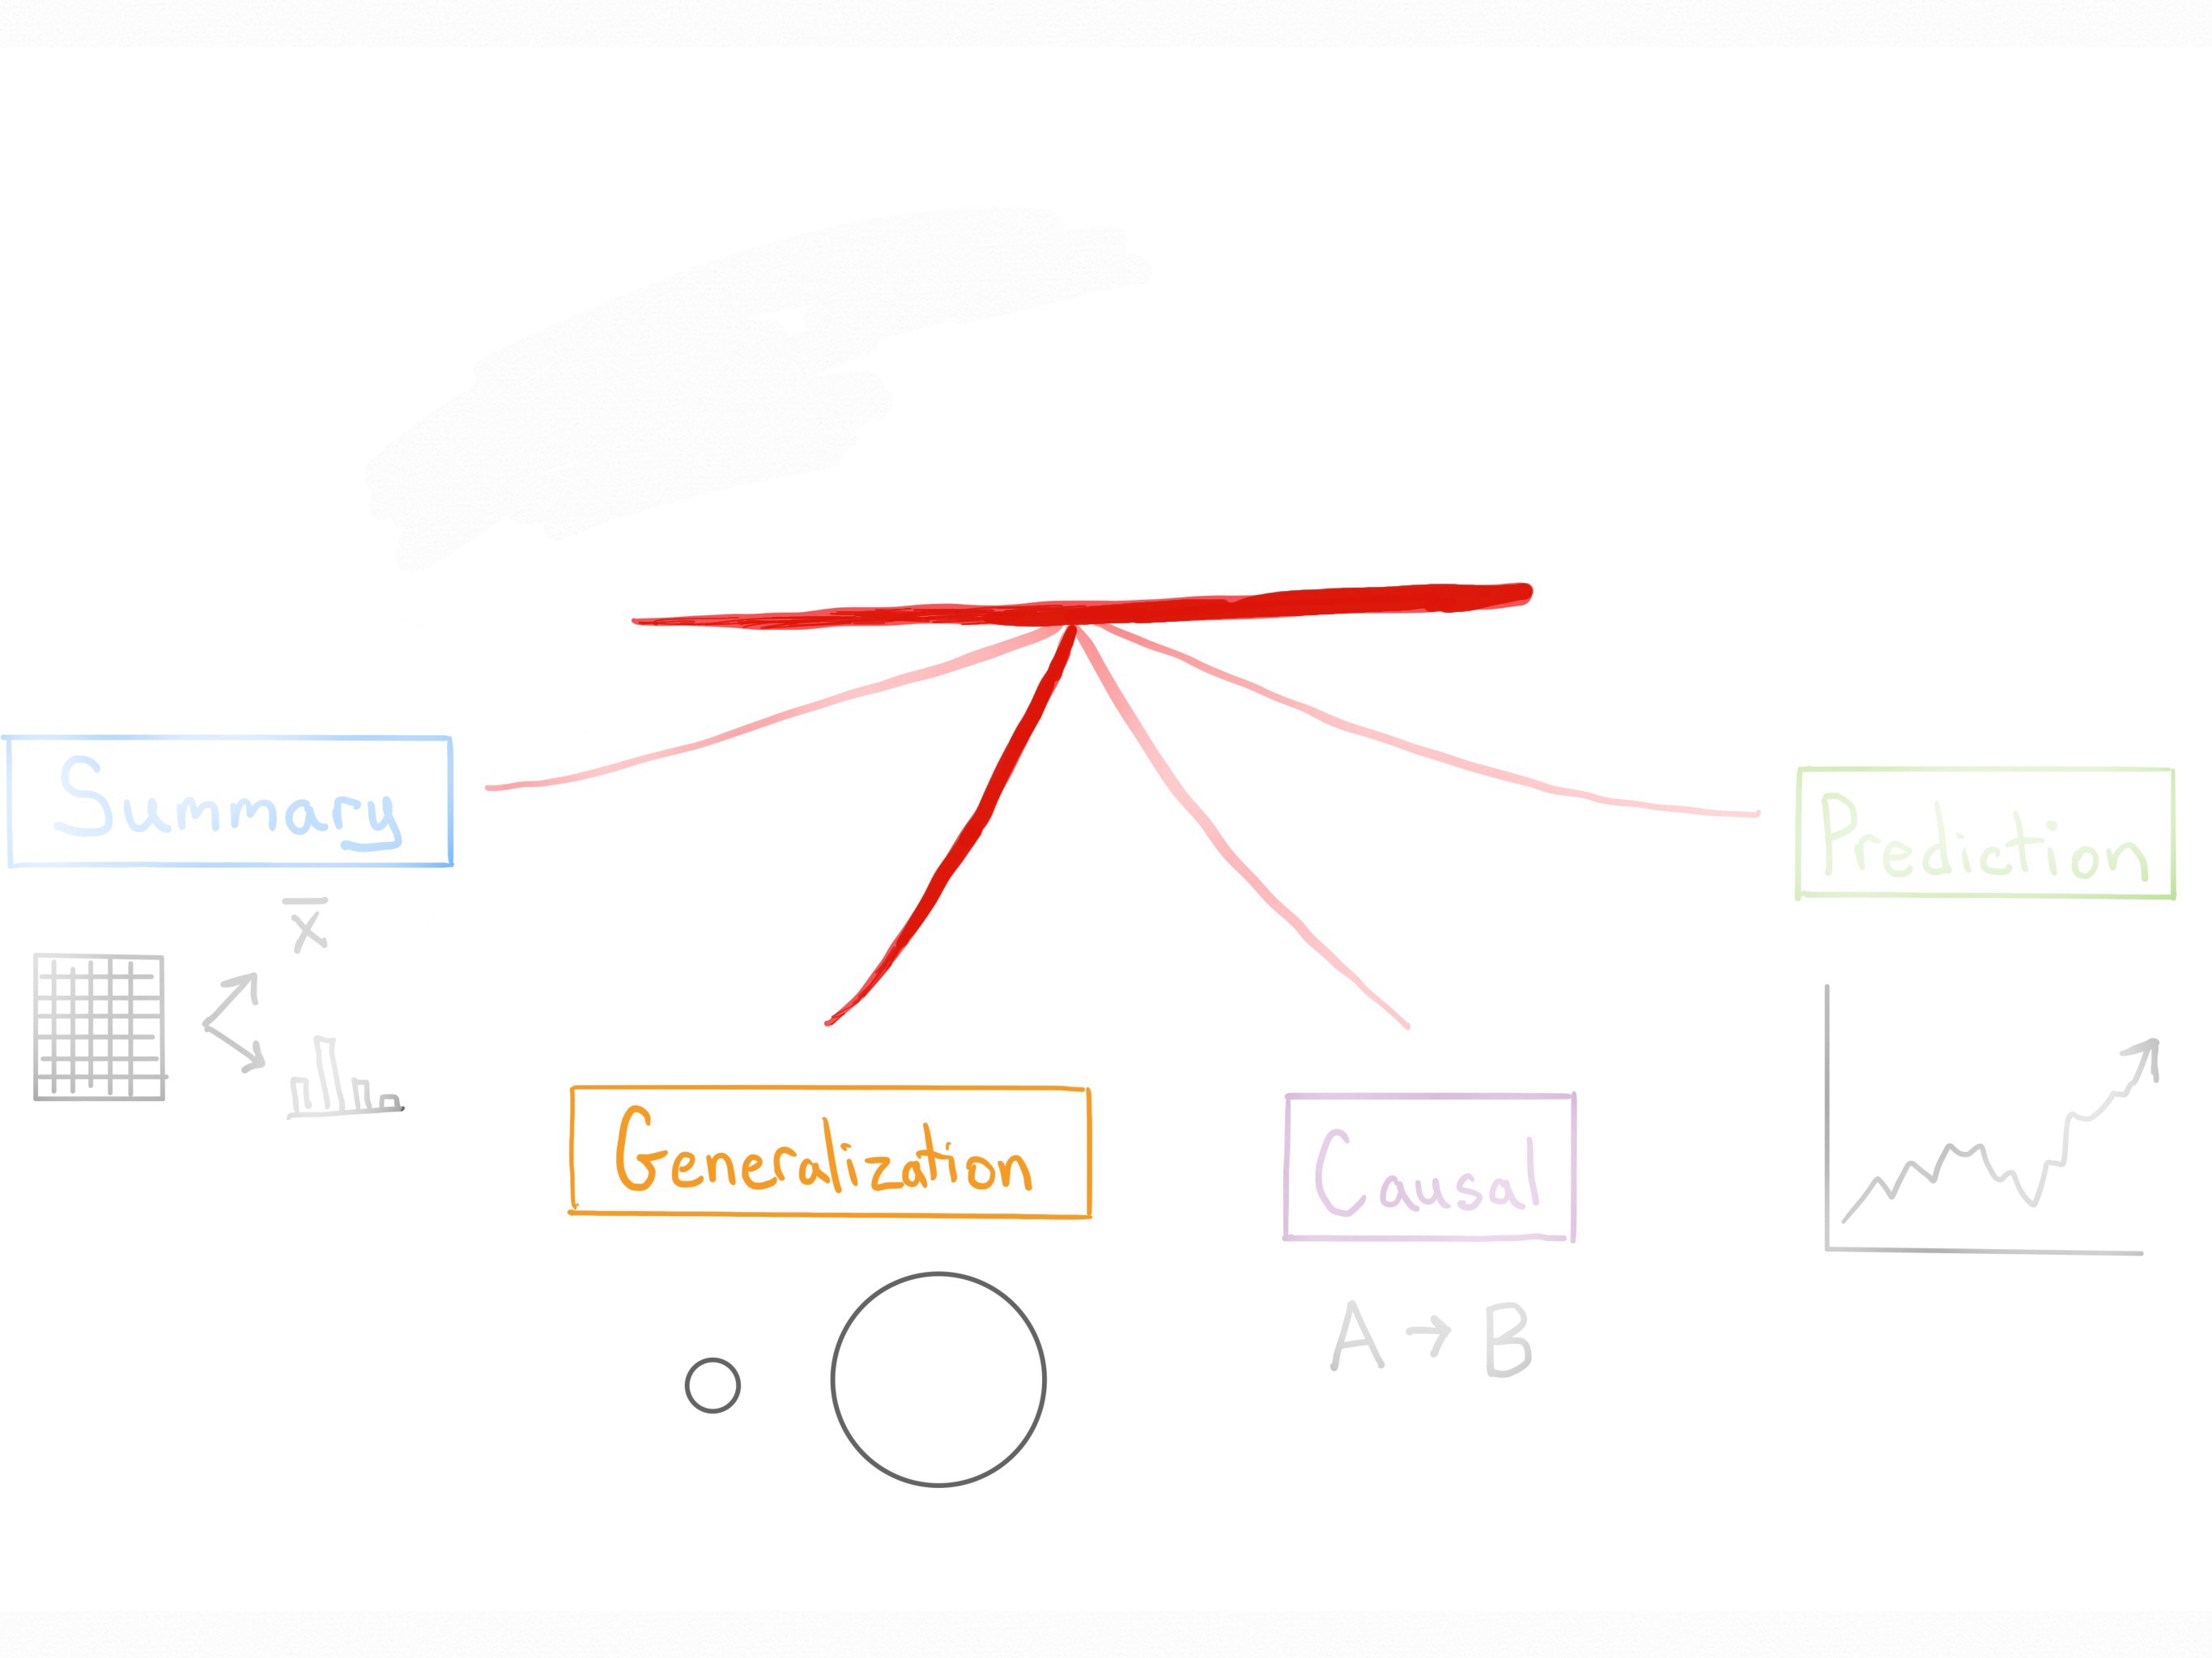 Summary
x̅
Generalization
Causal
A → B
Prediction